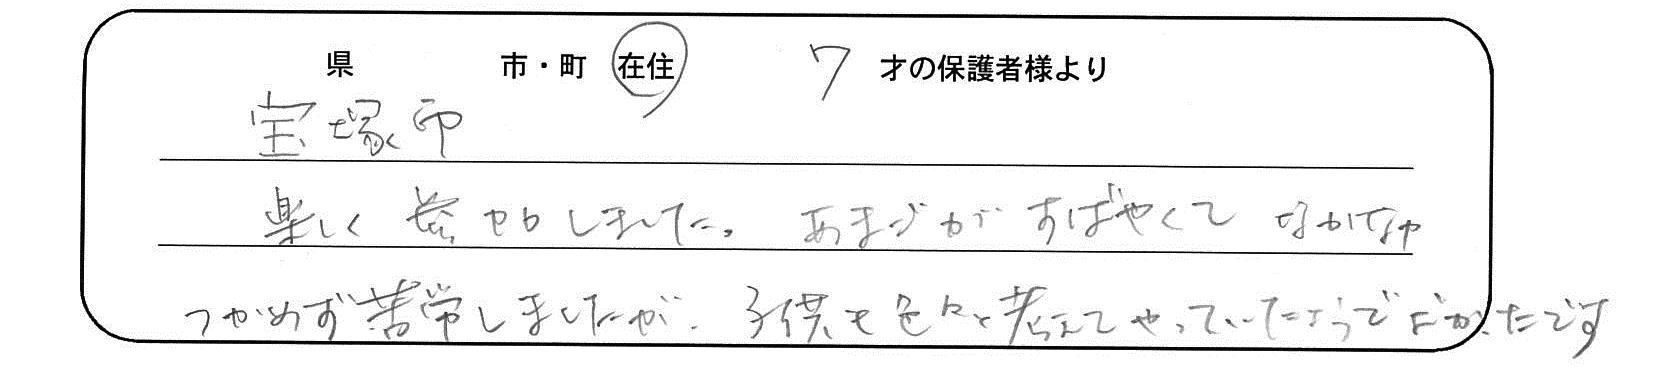 県 市・町 在住 7 才の保護者様より
宝塚市
楽しく 参加しました。 あまごが すばやくて なかなか
つかめず苦労しましたが、子供も色々と考えてやっていたようでよかったです